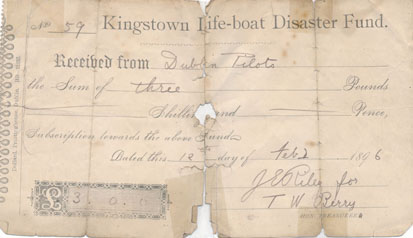 No 59 Kingstown Life-boat Disaster Fund.
Received from Dublin Pilots
the Sum of three Pounds
Shillings and Pence,
Subscription towards the above Fund.
Dated this 12 day of Feb 1896
£3. 0. 0
J E Riley for
T W Berry
HON. TREASURER